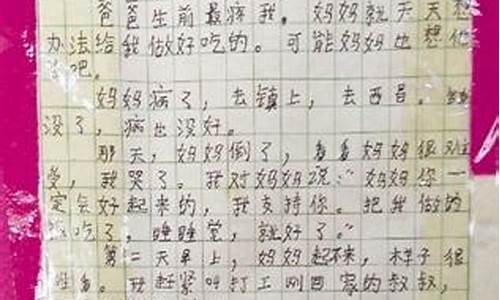 爸爸生前最疼我。妈妈就天天想
办法给我做好吃的。可能妈妈也想他
了吧。
妈妈病了，去镇上，去西昌。
没了，病也没好。
那天，妈妈倒了，看看妈妈很难
受，我哭了。我对妈妈说：“妈妈你一
定会好起来的，我支持你。把我做的
吃了，睡睡觉，就好了。”
第二天早上，妈妈起不来，样子很
我赶紧叫打工回家的叔叔，